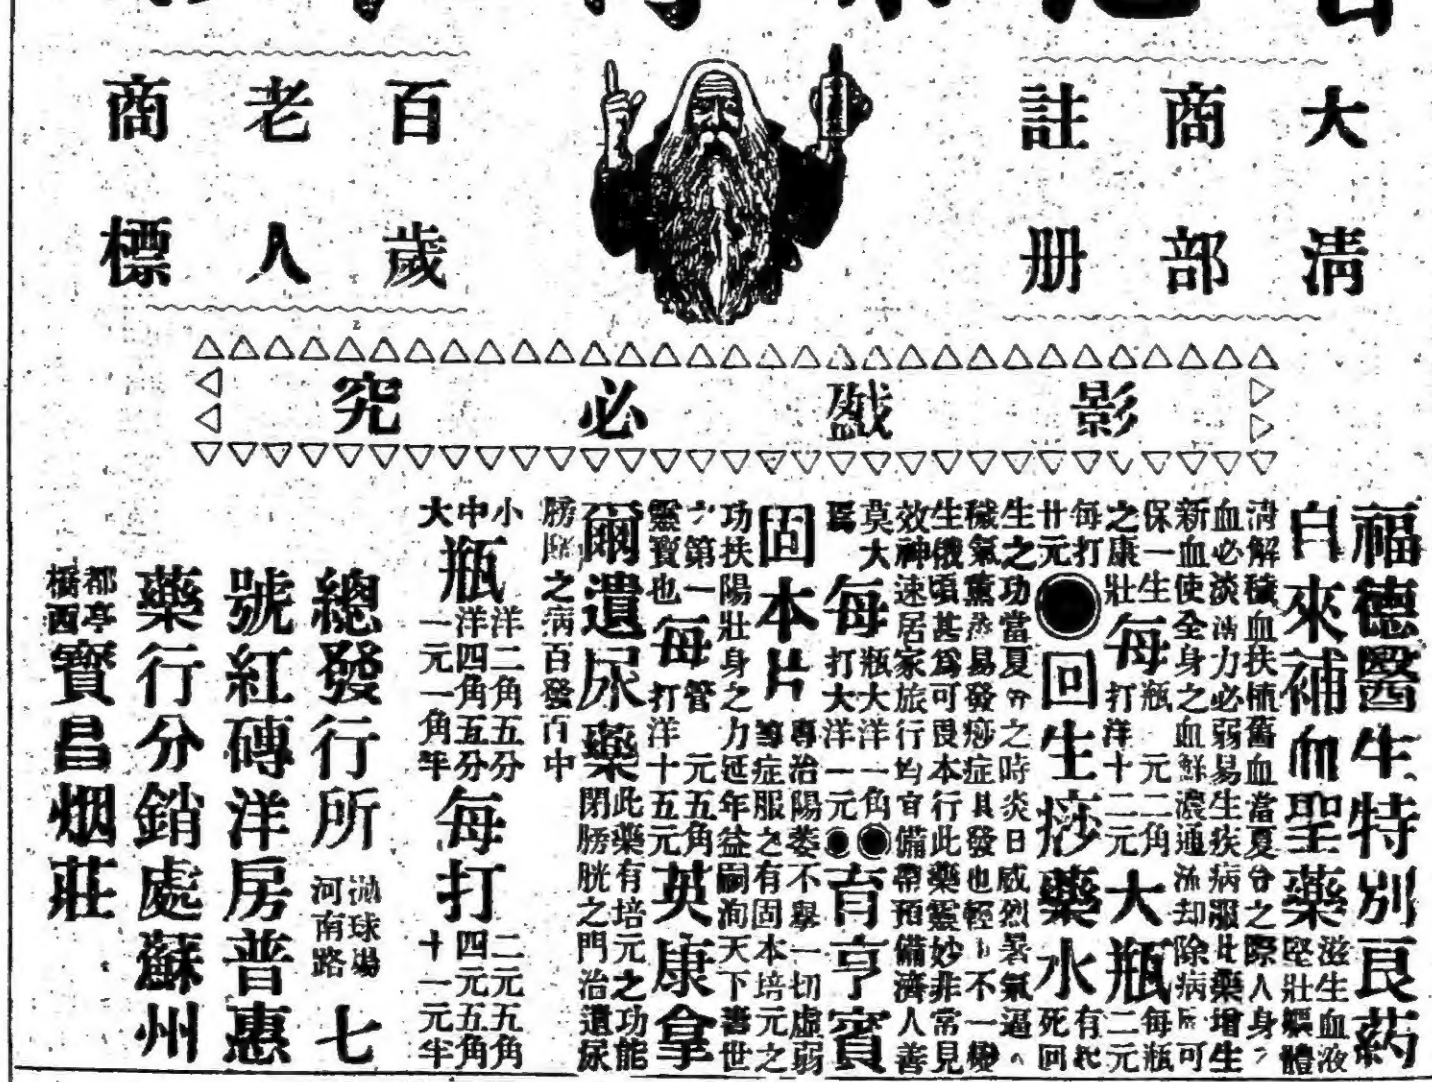 大清
商部
註册
百歲
老人
商標
影戤必究
福德醫生特別良葯
自來補血聖藥
滋生血液
堅壯軀體
清解穢血扶植舊血當夏令之際人身
血必淡薄力必弱易生疾病服此藥增生
新血使全身之血鮮濃通流却除病
保一生
之康壯
每瓶一元二角
每打洋十二元
大瓶
每瓶二元
每打廿元
●回生痧藥水
有起死回
生之功當夏令之時炎日威烈暑氣逼
穢氣薰蒸易發痧症其發也輕不一變
生俄頃甚為可畏本行此藥靈妙非常見
效神速居家旅行均宜備帶預備濟人善
莫大焉
每瓶大洋一角
每打大洋一元
●育亨賓固本片
專治陽萎不舉一切虛弱
等症服之有固本培元之
功扶陽壯身之力延年益嗣洵天下壽世
第一靈寶也
每管一元五角
每打洋十五元
英康拿爾遺尿藥
此藥有培元之功能
閉膀胱之門治遺尿
膀胱之病百發百中
小
中
大
瓶
洋二角五分
洋四角五分
一元一角半
每打
二元五角
四元五角
十一元半
總發行所
拋球場
河南路
七
號紅磚洋房普惠
藥行分銷處蘇州
都亭
橋西
寶昌烟莊